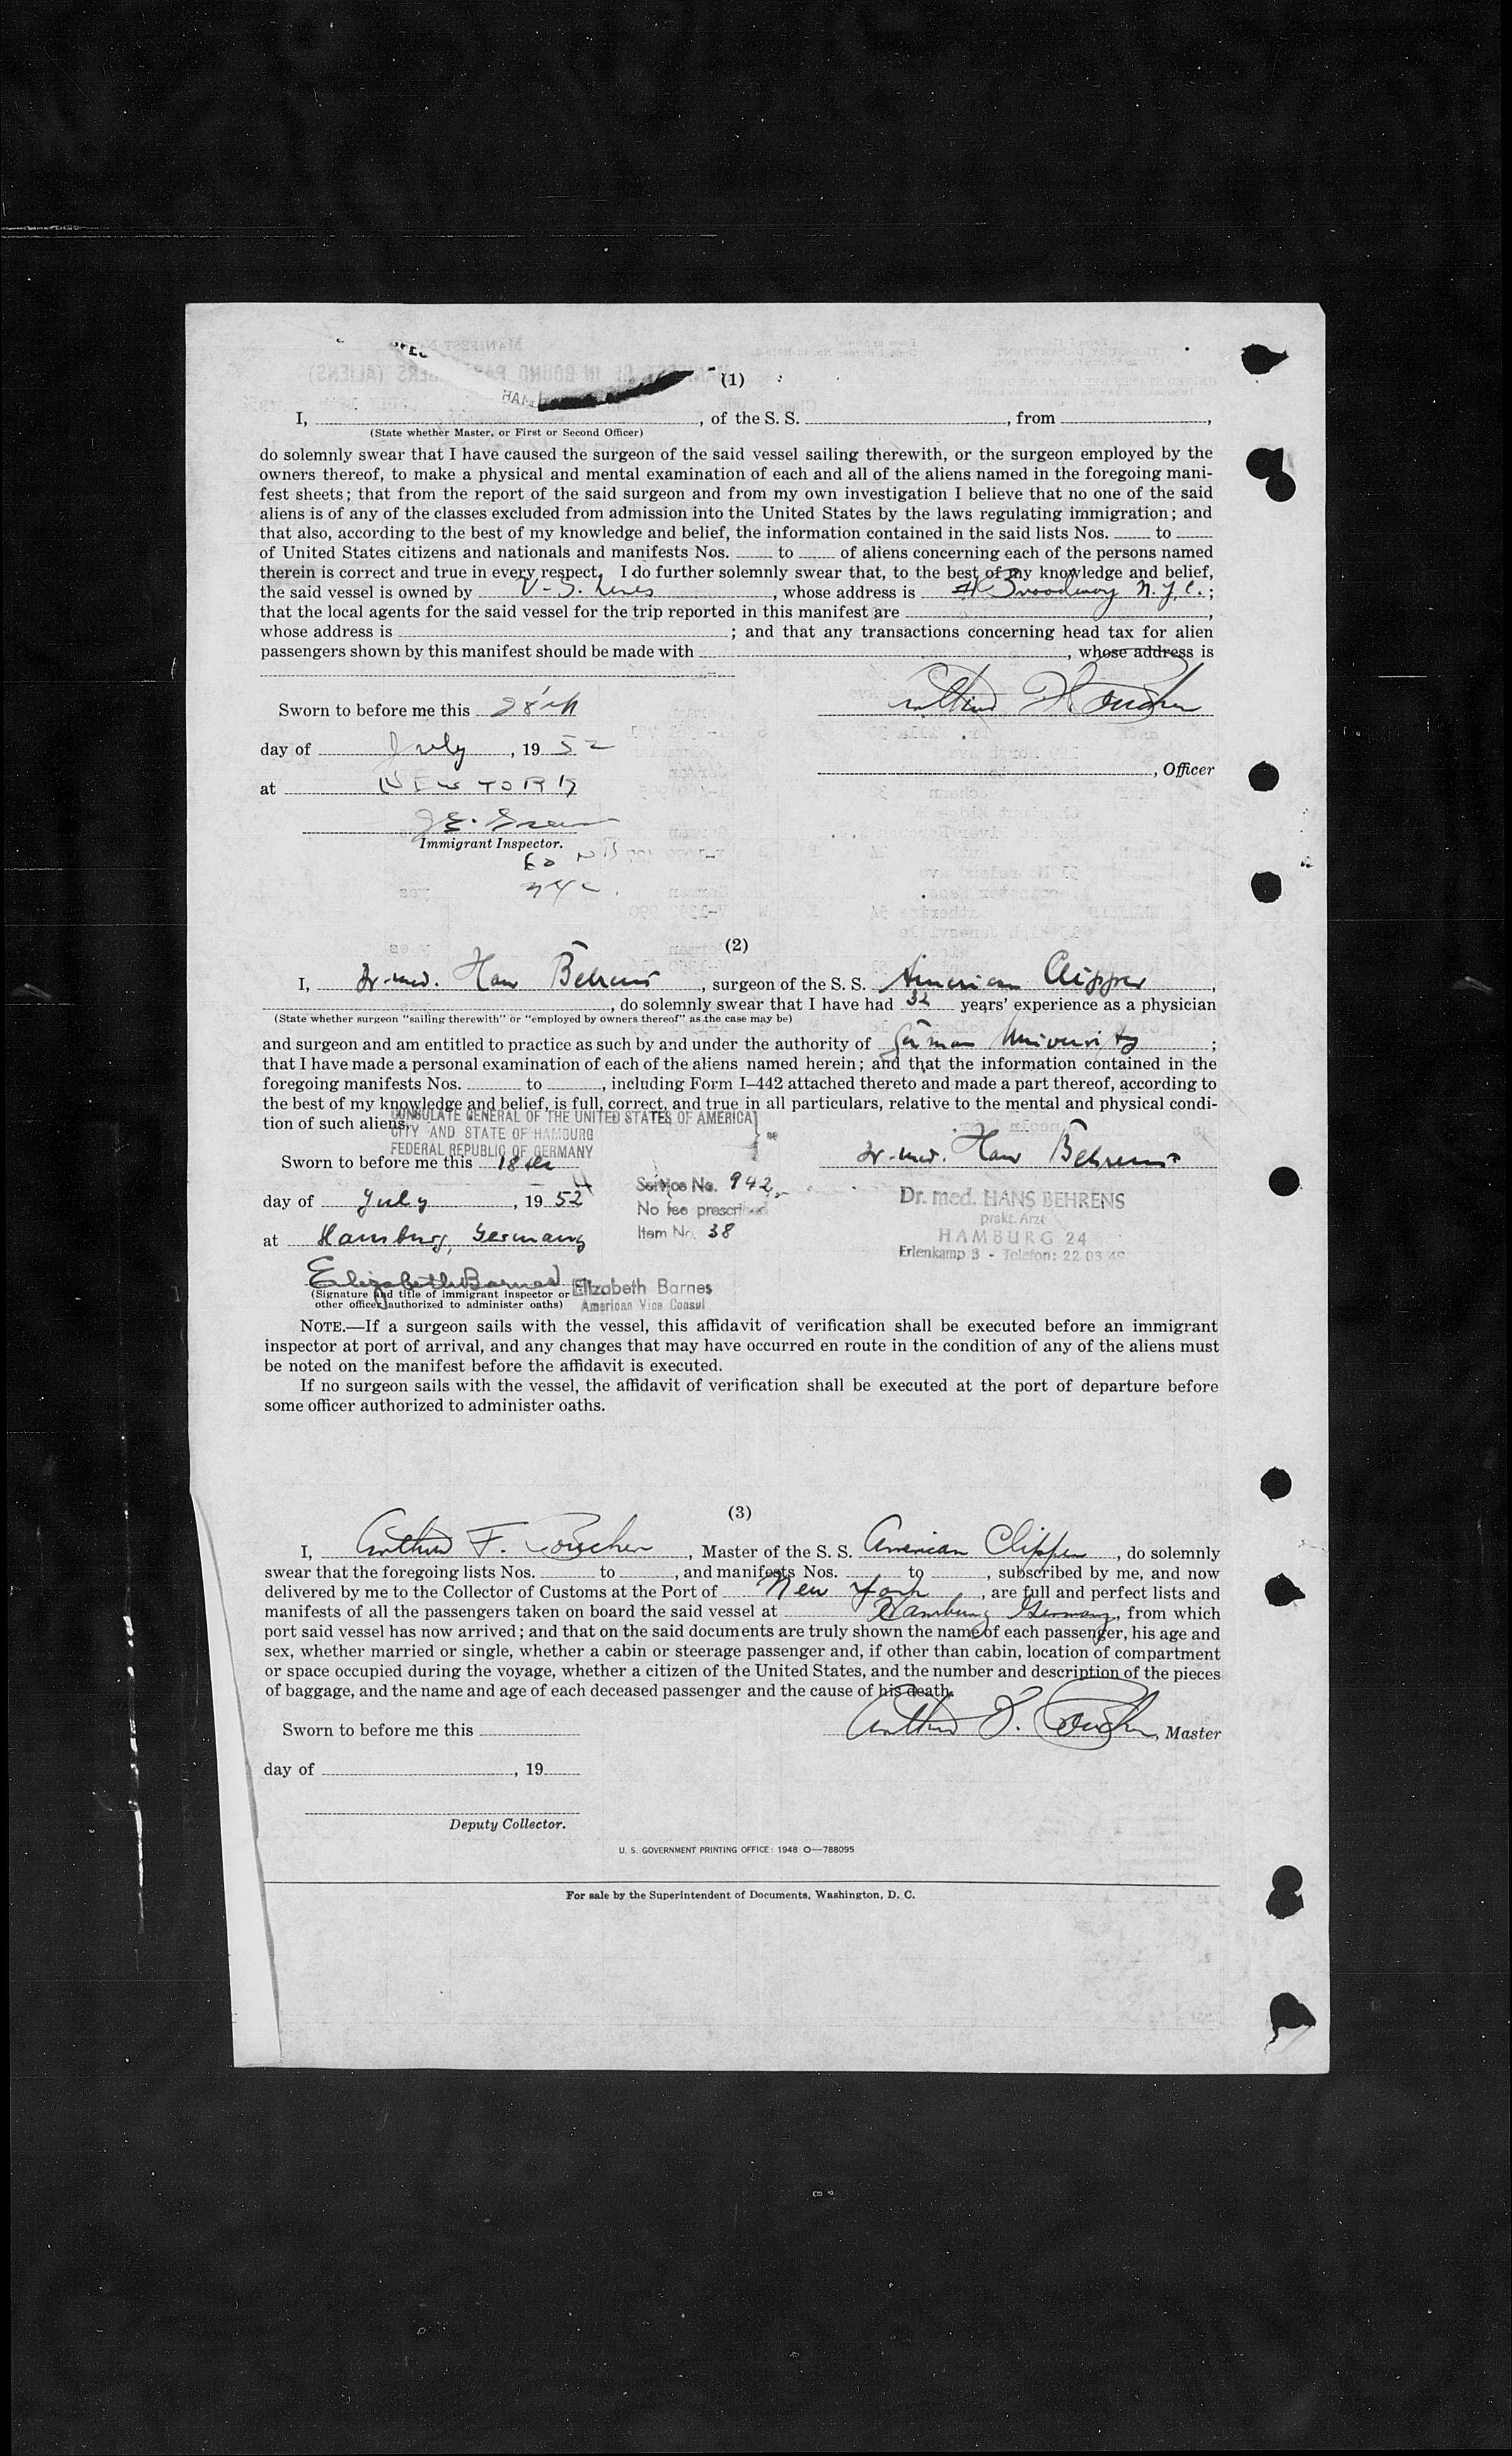 (1)
I, , of the S. S. , from ,
(State whether Master, or First or Second Officer)
do solemnly swear that I have caused the surgeon of the said vessel sailing therewith, or the surgeon employed by the
owners thereof, to make a physical and mental examination of each and all of the aliens named in the foregoing mani-
fest sheets; that from the report of the said surgeon and from my own investigation I believe that no one of the said
aliens is of any of the classes excluded from admission into the United States by the laws regulating immigration; and
that also, according to the best of my knowledge and belief, the information contained in the said lists Nos. to
of United States citizens and nationals and manifests Nos. to of aliens concerning each of the persons named
therein is correct and true in every respect. I do further solemnly swear that, to the best of my knowledge and belief,
the said vessel is owned by U. S. Lines, whose address is Broadway N.Y.C.;
that the local agents for the said vessel for the trip reported in this manifest are ,
whose address is ; and that any transactions concerning head tax for alien
passengers shown by this manifest should be made with , whose address is
Sworn to before me this 28th
day of July, 1952
, Officer
at NEW YORK
Immigrant Inspector.
(2)
I, Dr. med. Hans Behrens, surgeon of the S. S. American Clipper,
, do solemnly swear that I have had 32 years' experience as a physician
(State whether surgeon "sailing therewith" or "employed by owners thereof" as the case may be)
and surgeon and am entitled to practice as such by and under the authority of German University;
that I have made a personal examination of each of the aliens named herein; and that the information contained in the
foregoing manifests Nos. to , including Form I–442 attached thereto and made a part thereof, according to
the best of my knowledge and belief, is full, correct, and true in all particulars, relative to the mental and physical condi-
tion of such aliens.
CONSULATE GENERAL OF THE UNITED STATES OF AMERICA
CITY AND STATE OF HAMBURG
FEDERAL REPUBLIC OF GERMANY
Sworn to before me this 18th
Dr. med. Hans Behrens
day of July, 1952
Service No. 942
No fee prescribed
Item No. 38
Dr. med. HANS BEHRENS
prakt. Arzt
HAMBURG 24
Erlenkamp 3 - Telefon: 22 03 49
at Hamburg, Germany
Elizabeth Barnes
(Signature and title of immigrant inspector or
other officer authorized to administer oaths)
Elizabeth Barnes
American Vice Consul
NOTE.—If a surgeon sails with the vessel, this affidavit of verification shall be executed before an immigrant
inspector at port of arrival, and any changes that may have occurred en route in the condition of any of the aliens must
be noted on the manifest before the affidavit is executed.
If no surgeon sails with the vessel, the affidavit of verification shall be executed at the port of departure before
some officer authorized to administer oaths.
(3)
I, Arthur F. , Master of the S. S. American Clipper, do solemnly
swear that the foregoing lists Nos. to , and manifests Nos. to , subscribed by me, and now
delivered by me to the Collector of Customs at the Port of New York, are full and perfect lists and
manifests of all the passengers taken on board the said vessel at Hamburg Germany, from which
port said vessel has now arrived; and that on the said documents are truly shown the name of each passenger, his age and
sex, whether married or single, whether a cabin or steerage passenger and, if other than cabin, location of compartment
or space occupied during the voyage, whether a citizen of the United States, and the number and description of the pieces
of baggage, and the name and age of each deceased passenger and the cause of his death.
Sworn to before me this
Arthur F. , Master
day of , 19
Deputy Collector.
U. S. GOVERNMENT PRINTING OFFICE: 1948 O—788095
For sale by the Superintendent of Documents, Washington, D. C.